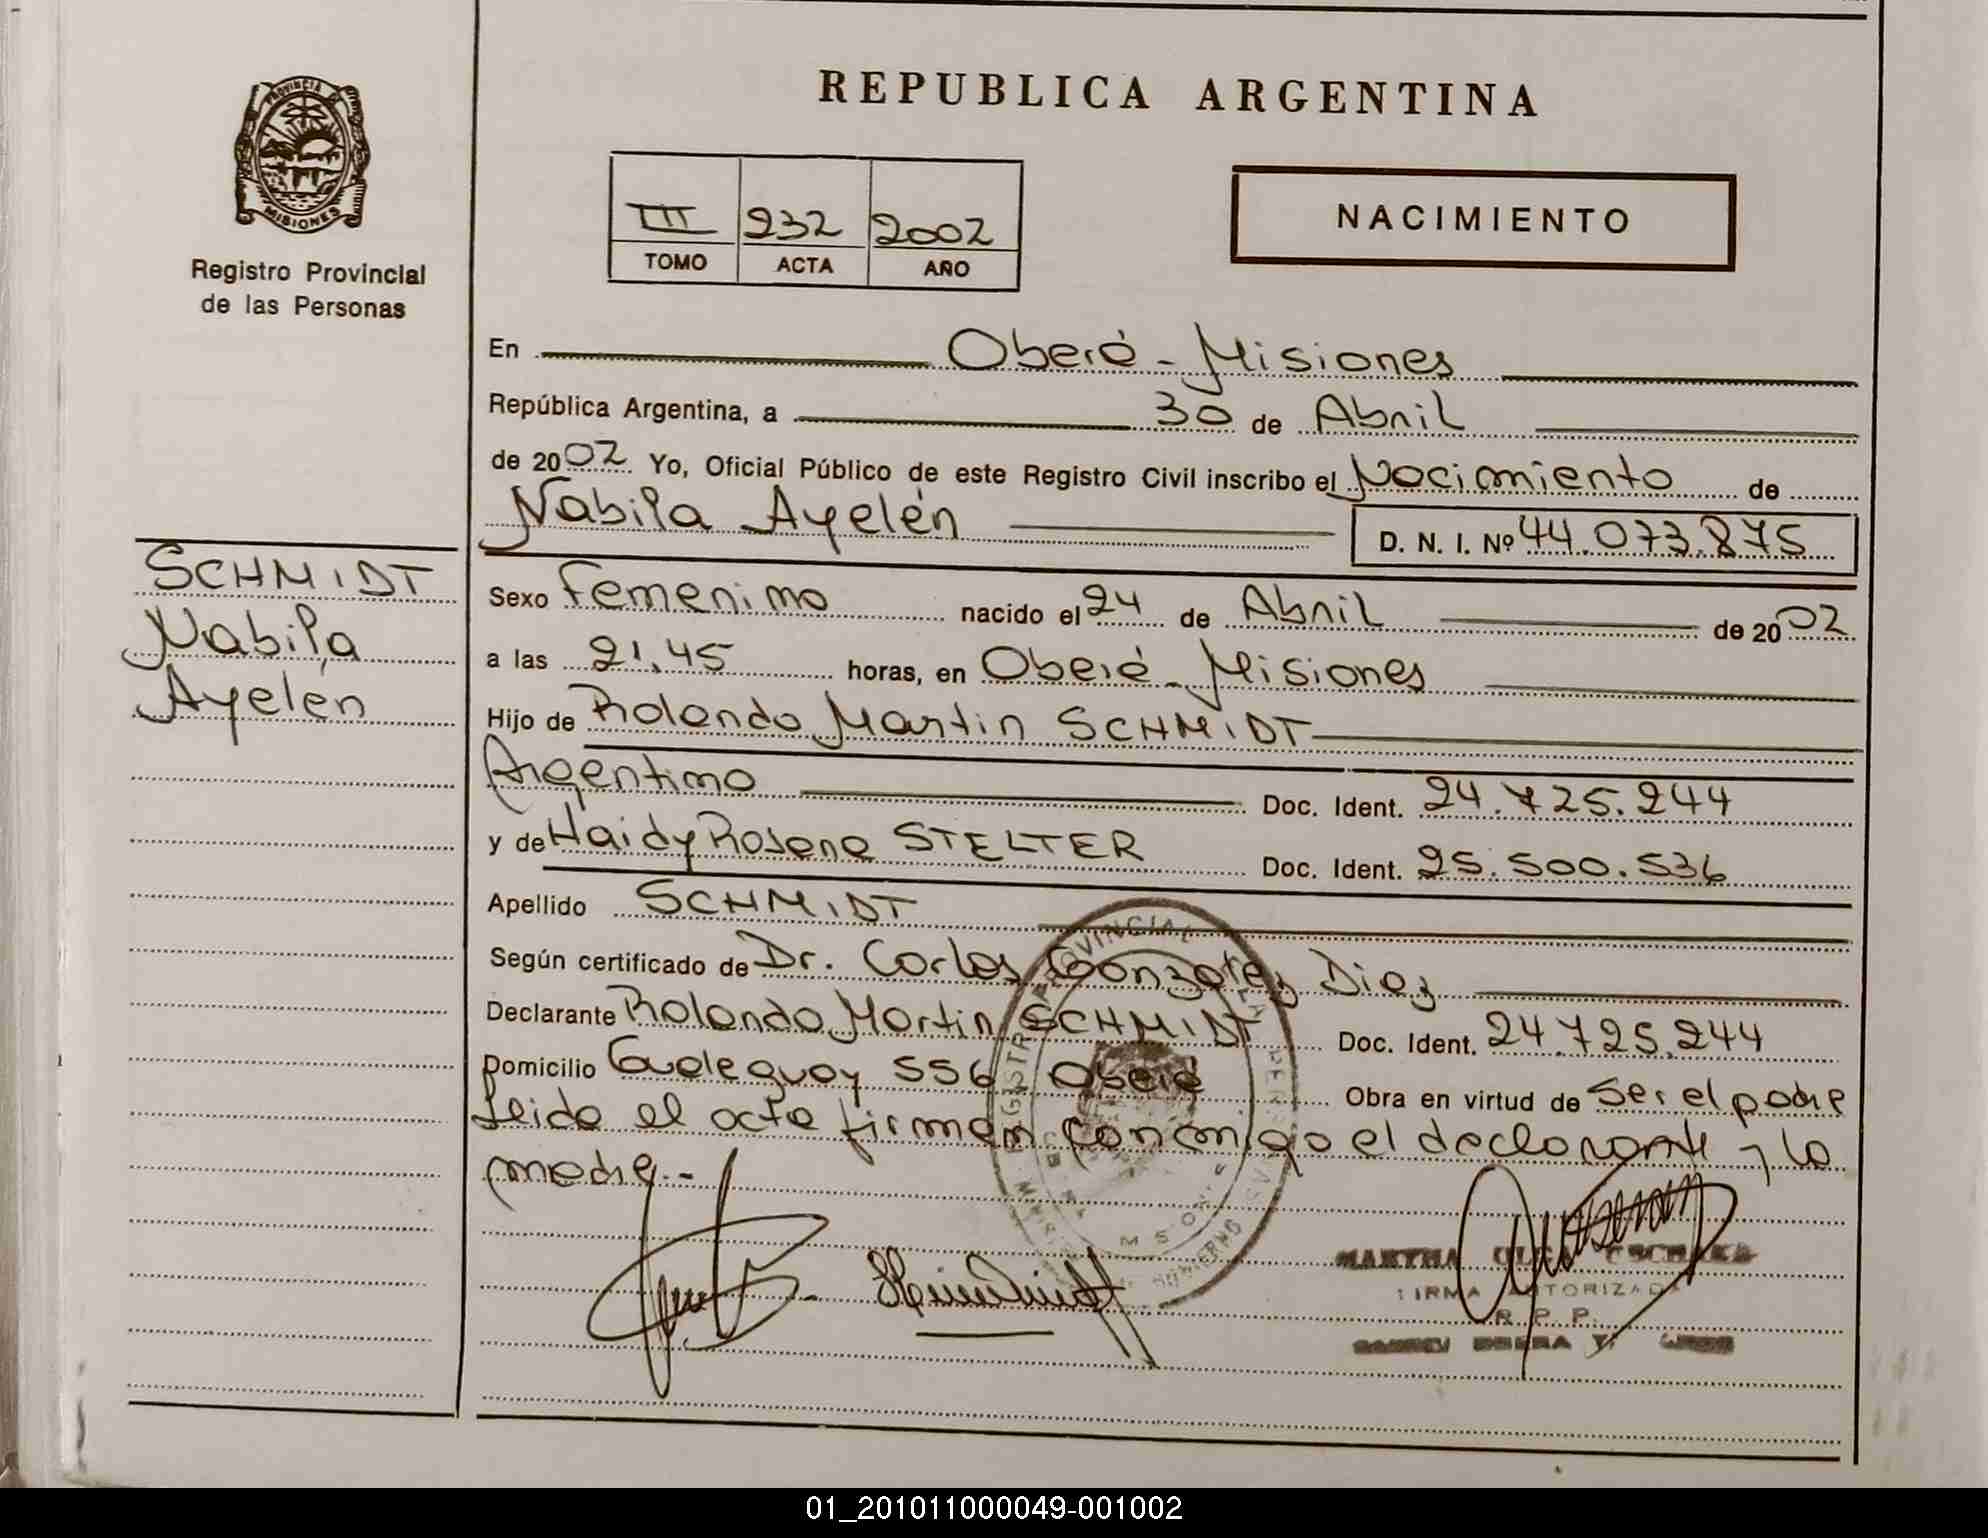 REPUBLICA ARGENTINA
PROVINCIA DE
MISIONES
Registro Provincial
de las Personas
III 232 2002
TOMO ACTA AÑO
NACIMIENTO
En Oberá - Misiones
República Argentina, a 30 de Abril
de 2002 Yo, Oficial Público de este Registro Civil inscribo el Nacimiento de
Nabila Ayelén D. N. I. Nº 44.073.875
SCHMIDT
Nabila
Ayelén
Sexo Femenino nacido el 24 de Abril de 2002
a las 21,45 horas, en Oberá - Misiones
Hijo de Rolando Martin SCHMIDT
Argentino Doc. Ident. 24.725.244
y de Haidy Rosana STELTER Doc. Ident. 25.500.536
Apellido SCHMIDT
Según certificado de Dr. Carlos Gonzalez Diaz
Declarante Rolando Martin SCHMIDT Doc. Ident. 24.725.244
Domicilio Gualeguay 556 Oberá Obra en virtud de ser el padre
Leida el acta firman conmigo el declarante y la
madre.-
FIRMA AUTORIZADA
R. P. P.
01_201011000049-001002